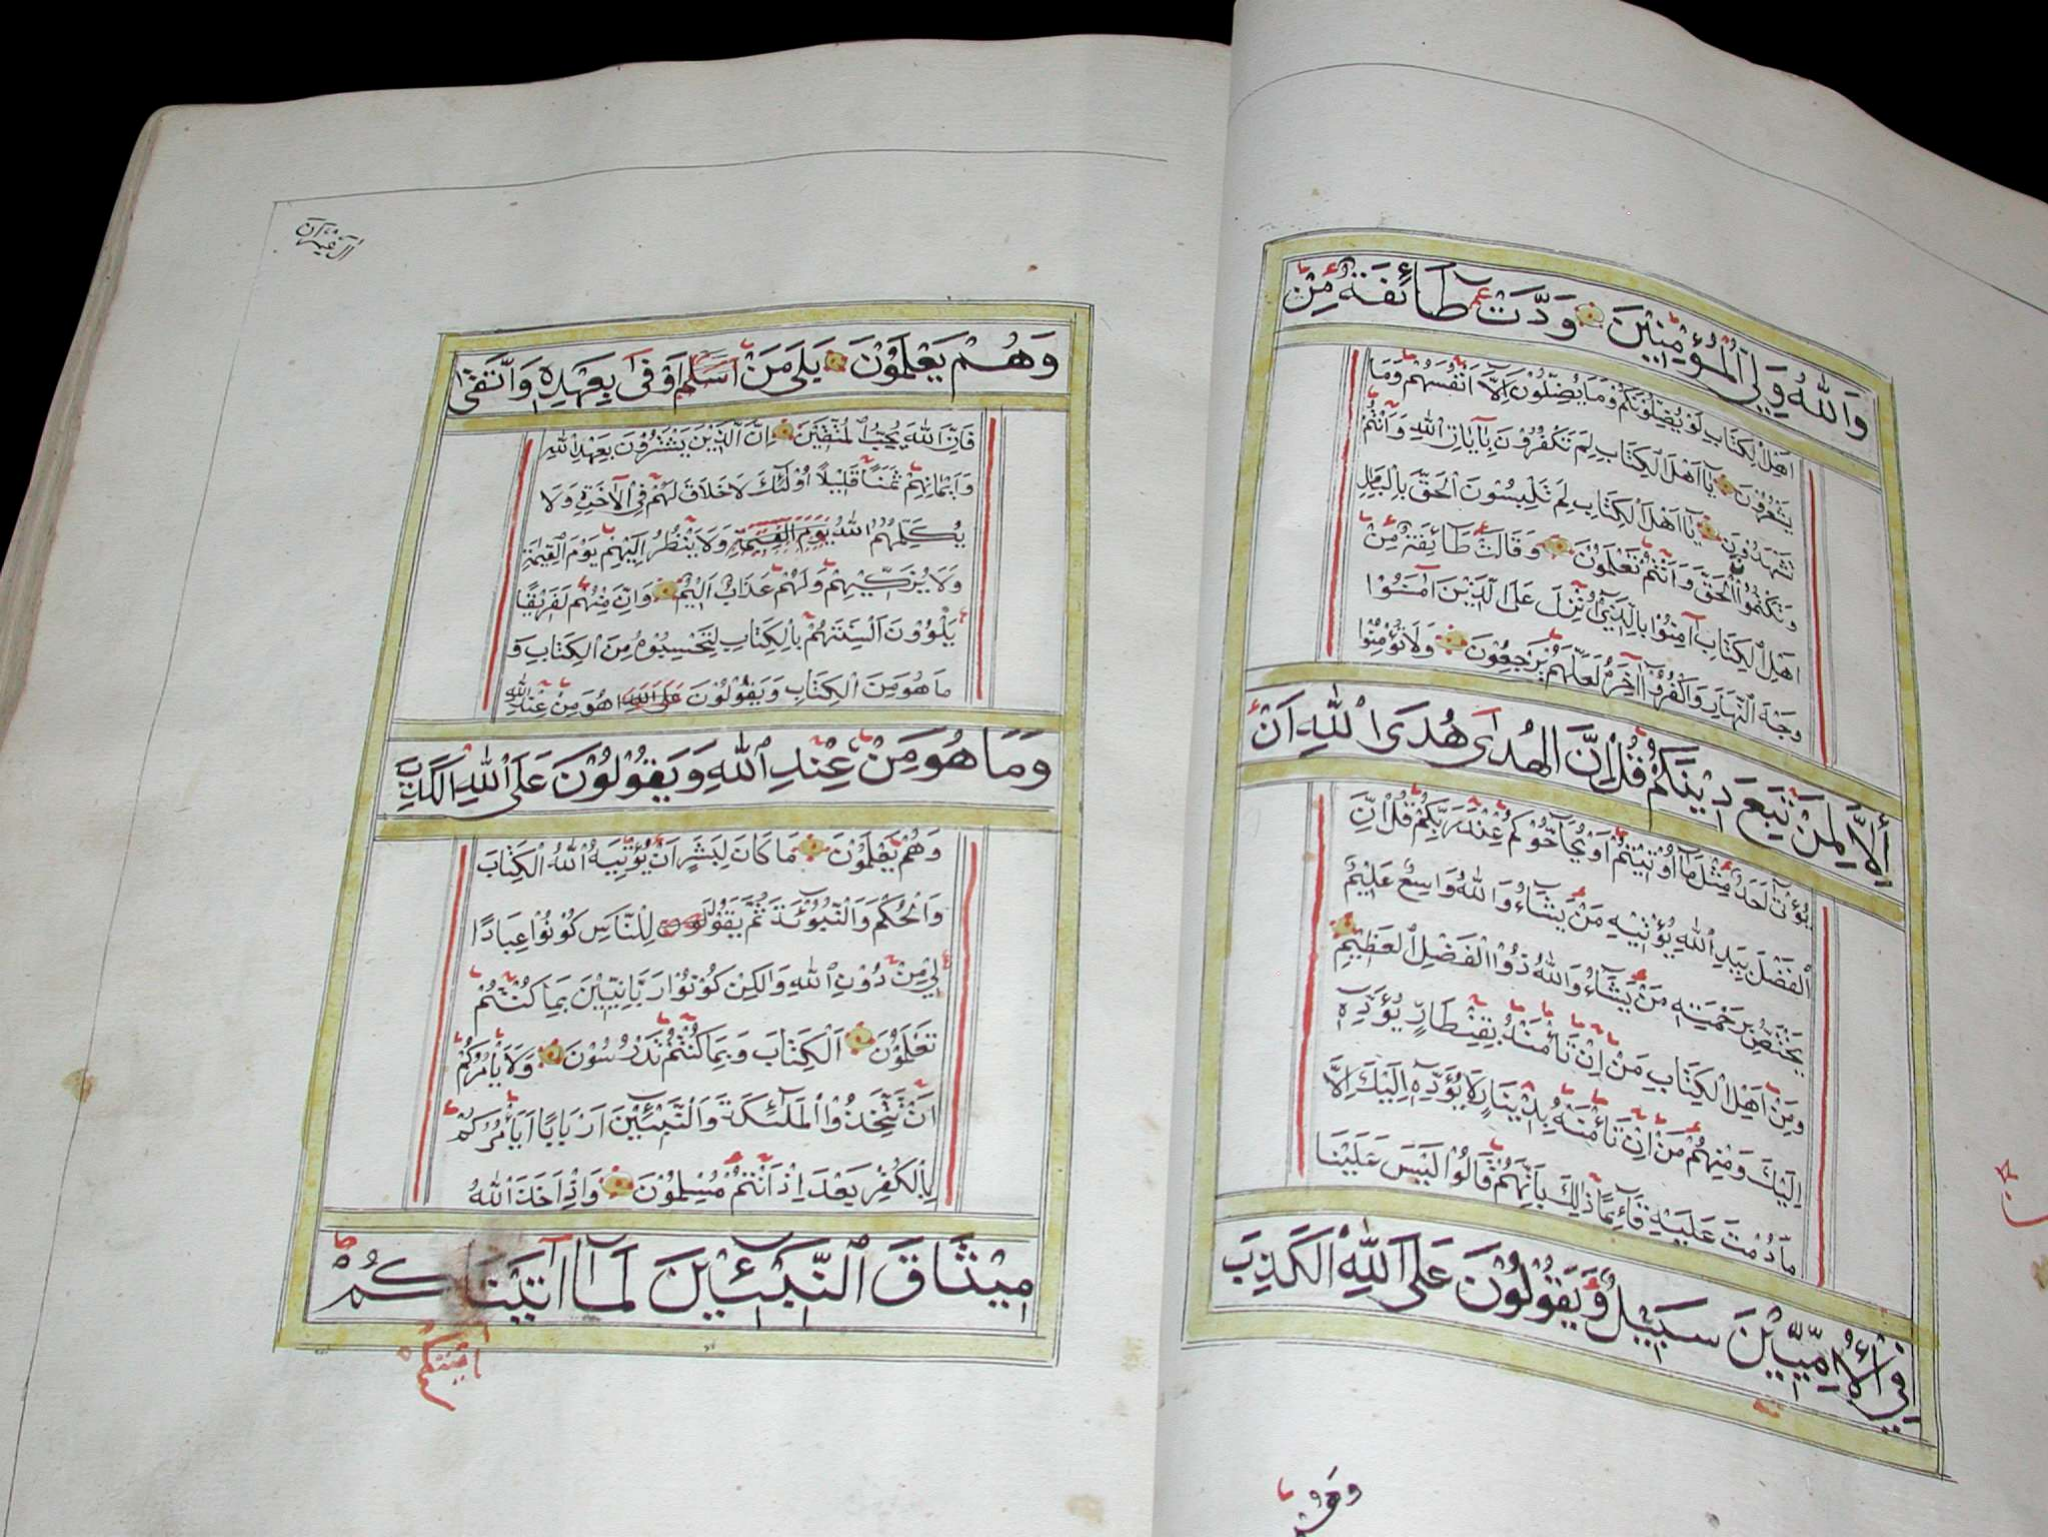 وَاللّٰهُ وَلِيُّ الْمُؤْمِنِيْنَ وَدَّتْ طَائِفَةٌ مِنْ
اَهْلِ الْكِتَابِ لَوْ يُضِلُّوْنَكُمْ وَمَا يُضِلُّوْنَ اِلَّا اَنْفُسَهُمْ وَمَا
يَشْعُرُوْنَ يَا اَهْلَ الْكِتَابِ لِمَ تَكْفُرُوْنَ بِآيَاتِ اللّٰهِ وَاَنْتُمْ
تَشْهَدُوْنَ يَا اَهْلَ الْكِتَابِ لِمَ تَلْبِسُوْنَ الْحَقَّ بِالْبَاطِلِ
وَتَكْتُمُوْا الْحَقَّ وَاَنْتُمْ تَعْلَمُوْنَ وَقَالَتْ طَائِفَةٌ مِنْ
اَهْلِ الْكِتَابِ آمِنُوْا بِالَّذِيْ اُنْزِلَ عَلَى الَّذِيْنَ اٰمَنُوْا
وَجْهَ النَّهَارِ وَاكْفُرُوْا آخِرَهُ لَعَلَّهُمْ يَرْجِعُوْنَ وَلَا تُؤْمِنُوْا
اِلَّا لِمَنْ تَبِعَ دِيْنَكُمْ قُلْ اِنَّ الْهُدَى هُدَى اللّٰهِ اَنْ
يُؤْتَى اَحَدٌ مِثْلَ مَا اُوْتِيْتُمْ اَوْ يُحَاجُّوْكُمْ عِنْدَ رَبِّكُمْ قُلْ اِنَّ
الْفَضْلَ بِيَدِ اللّٰهِ يُؤْتِيْهِ مَنْ يَشَاءُ وَاللّٰهُ وَاسِعٌ عَلِيْمٌ
يَخْتَصُّ بِرَحْمَتِهِ مَنْ يَشَاءُ وَاللّٰهُ ذُوْا الْفَضْلِ الْعَظِيْمِ
وَمِنْ اَهْلِ الْكِتَابِ مَنْ اِنْ تَأْمَنْهُ بِقِنْطَارٍ يُؤَدِّهِ
اِلَيْكَ وَمِنْهُمْ مَنْ اِنْ تَأْمَنْهُ بِدِيْنَارٍ لَا يُؤَدِّهِ اِلَيْكَ اِلَّا
مَا دُمْتَ عَلَيْهِ قَائِمًا ذٰلِكَ بِاَنَّهُمْ قَالُوْا لَيْسَ عَلَيْنَا
فِي الْاُمِّيِّيْنَ سَبِيْلٌ وَيَقُوْلُوْنَ عَلَى اللّٰهِ الْكَذِبَ
وَهُمْ
وَهُمْ يَعْلَمُوْنَ بَلٰى مَنْ اَسْلَمَ اَوْفٰى بِعَهْدِهِ وَاتَّقٰى
فَاِنَّ اللّٰهَ يُحِبُّ الْمُتَّقِيْنَ اِنَّ الَّذِيْنَ يَشْتَرُوْنَ بِعَهْدِ اللّٰهِ
وَاَيْمَانِهِمْ ثَمَنًا قَلِيْلًا اُوْلٰئِكَ لَا خَلَاقَ لَهُمْ فِي الْاٰخِرَةِ وَلَا
يُكَلِّمُهُمُ اللّٰهُ يَوْمَ الْقِيٰمَةِ وَلَا يَنْظُرُ اِلَيْهِمْ يَوْمَ الْقِيٰمَةِ
وَلَا يُزَكِّيْهِمْ وَلَهُمْ عَذَابٌ اَلِيْمٌ وَاِنَّ مِنْهُمْ لَفَرِيْقًا
يَلْوُوْنَ اَلْسِنَتَهُمْ بِالْكِتَابِ لِتَحْسِبُوْهُ مِنَ الْكِتَابِ وَ
مَا هُوَ مِنَ الْكِتَابِ وَيَقُوْلُوْنَ عَلَى اللّٰهِ هُوَ مِنْ عِنْدِ اللّٰهِ
وَمَا هُوَ مِنْ عِنْدِ اللّٰهِ وَيَقُوْلُوْنَ عَلَى اللّٰهِ الْكَذِبَ
وَهُمْ يَعْلَمُوْنَ مَا كَانَ لِبَشَرٍ اَنْ يُؤْتِيَهُ اللّٰهُ الْكِتَابَ
وَالْحُكْمَ وَالنُّبُوَّةَ ثُمَّ يَقُوْلَ لِلنَّاسِ كُوْنُوْا عِبَادًا
لِيْ مِنْ دُوْنِ اللّٰهِ وَلَاكِنْ كُوْنُوْا رَبَّانِيِّيْنَ بِمَا كُنْتُمْ
تَعْلَمُوْنَ الْكِتَابَ وَبِمَا كُنْتُمْ تَدْرُسُوْنَ وَلَا يَأْمُرُكُمْ
اَنْ تَتَّخِذُوْا الْمَلٰئِكَةَ وَالنَّبِيِّيْنَ اَرْبَابًا اَيَأْمُرُكُمْ
بِالْكُفْرِ بَعْدَ اِذْ اَنْتُمْ مُسْلِمُوْنَ وَاِذْ اَخَذَ اللّٰهُ
مِيْثَاقَ النَّبِيِّيْنَ لَمَا اٰتَيْنَاكُمْ
اٰتَيْتُكُمْ